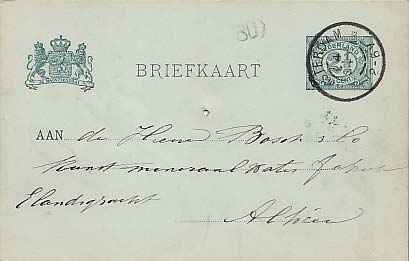 BRIEFKAART
NEDERLAND
AAN de Heeren Bosch & Co
Kunst mineraal water fabriek
Elandsgracht
Alhier